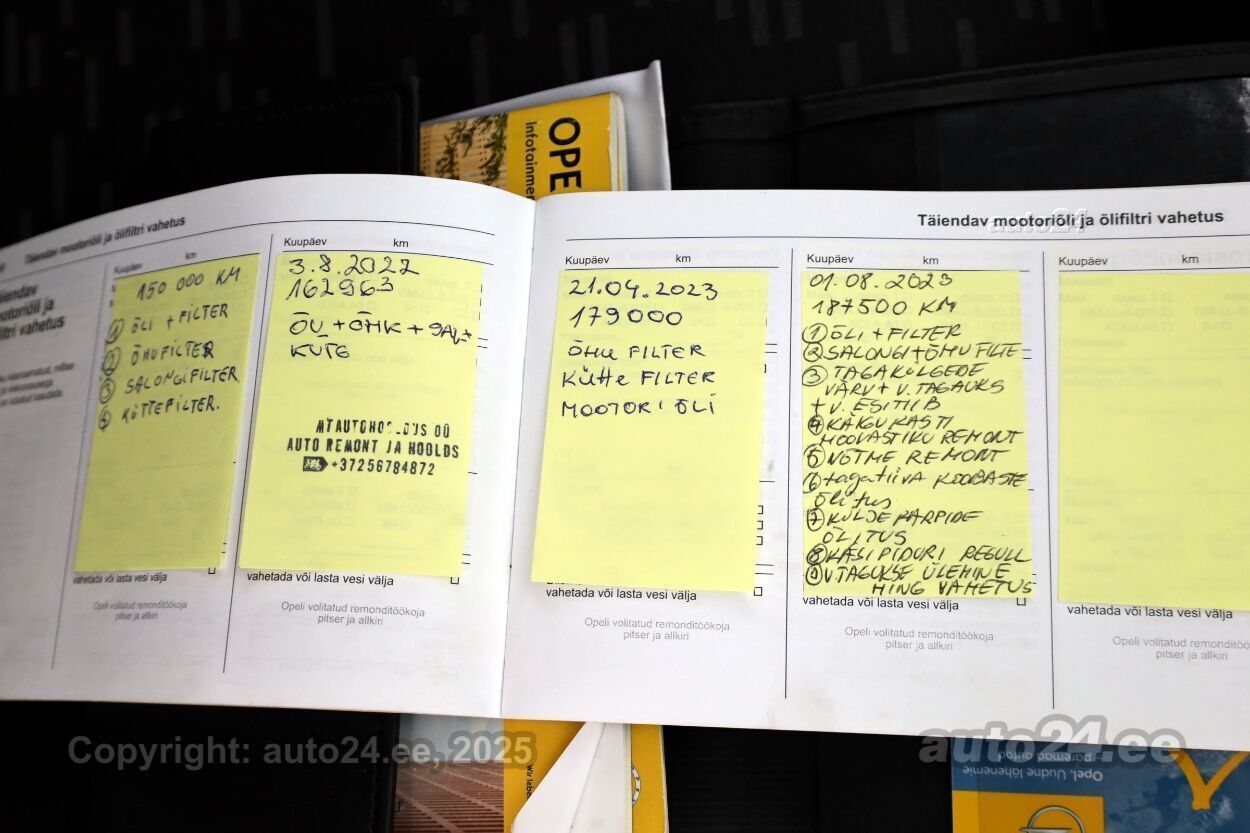 OPE
Infotainme
Täiendav mootoriõli ja õlifiltri vahetus
Kuupäev km
150 000 KM
① ÕLI + FILTER
② ÕHUFILTER
③ SALONGIFILTER.
④ KÜTTEFILTER.
Kuupäev km
3.8.2022
162963
KÜTE
AUTO REMONT JA HOOLDS
+37256784872
vahetada või lasta vesi välja
Opeli volitatud remonditöökoja
pitser ja allkiri
vahetada või lasta vesi välja
Opeli volitatud remonditöökoja
pitser ja allkiri
Täiendav mootoriõli ja õlifiltri vahetus
auto24
Kuupäev km
21.04.2023
179000
ÕHU FILTER
KÜTTE FILTER
MOOTORI ÕLI
vahetada või lasta vesi välja
Opeli volitatud remonditöökoja
pitser ja allkiri
Kuupäev km
01.08.2023
187500 KM
① ÕLI + FILTER
② SALONGI+ÕHU FILTE
③ TAGAKÜLGEDE
VÄRV + V. TAGAUKS
+ V. ESITIIB
④ KÄIGUKASTI
HOOVASTIKU REMONT
⑤ VÕTME REMONT
⑥ tagatiiva KOOBASTE
õlitus
⑦ KÜLJE KARPIDE
ÕLITUS
⑧ KÄSIPIDURI REGULL
⑨ V.TAGUKSE ÜLEMINE
HING VAHETUS
vahetada või lasta vesi välja
Opeli volitatud remonditöökoja
pitser ja allkiri
Kuupäev km
vahetada või lasta vesi välja
Opeli volitatud remonditöökoja
pitser ja allkiri
Copyright: auto24.ee, 2025
auto24.ee
Opel. Uudne lähenemie
paremad autod